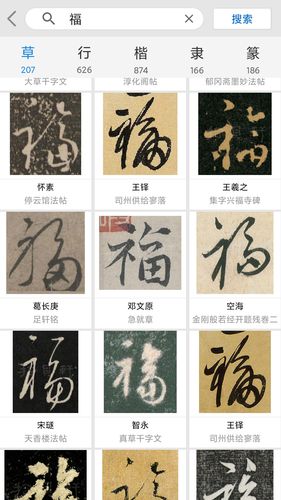 福
搜索
草 行 楷 隶 篆
207 626 874 166 186
大草千字文 淳化阁帖 郁冈斋墨妙法帖
福 福 福
怀素 王铎 王羲之
停云馆法帖 司州供给寥落 集字兴福寺碑
福 福 福
葛长庚 邓文原 空海
足轩铭 急就章 金刚般若经开题残卷二
福 福 福
宋璲 智永 王铎
天香楼法帖 真草千字文 司州供给寥落
福 福 福